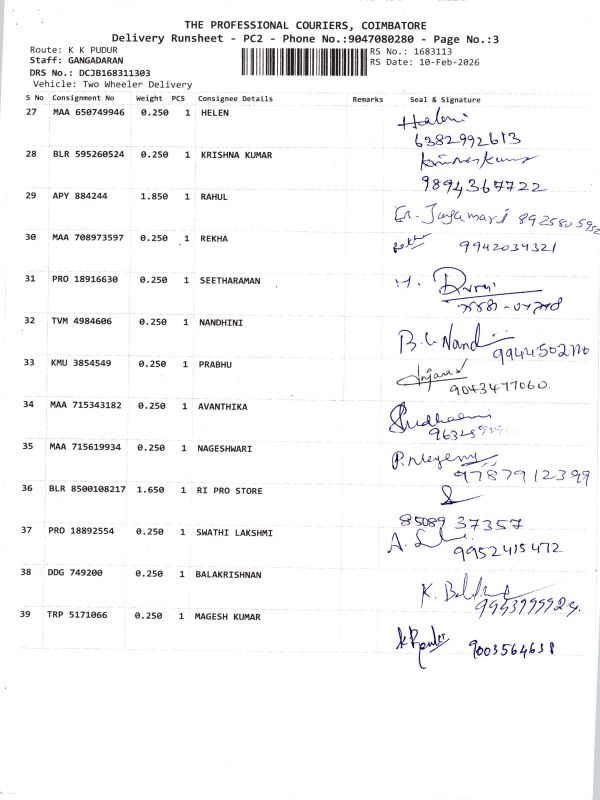 THE PROFESSIONAL COURIERS, COIMBATORE
Delivery Runsheet - PC2 - Phone No.:9047080280 - Page No.:3
Route: K K PUDUR
RS No.: 1683113
Staff: GANGADARAN
RS Date: 10-Feb-2026
DRS No.: DCJB168311303
Vehicle: Two Wheeler Delivery
S No Consignment No Weight PCS Consignee Details Remarks Seal & Signature
27 MAA 650749946 0.250 1 HELEN
6382992613
28 BLR 595260524 0.250 1 KRISHNA KUMAR
9894367722
29 APY 884244 1.850 1 RAHUL
30 MAA 708973597 0.250 1 REKHA 9942034321
31 PRO 18916630 0.250 1 SEETHARAMAN
32 TVM 4984606 0.250 1 NANDHINI
33 KMU 3854549 0.250 1 PRABHU
9043477060
34 MAA 715343182 0.250 1 AVANTHIKA
35 MAA 715619934 0.250 1 NAGESHWARI
9787912399
36 BLR 8500108217 1.650 1 RI PRO STORE
85089 37357
37 PRO 18892554 0.250 1 SWATHI LAKSHMI
9952415472
38 DDG 749200 0.250 1 BALAKRISHNAN
39 TRP 5171066 0.250 1 MAGESH KUMAR
9003564638